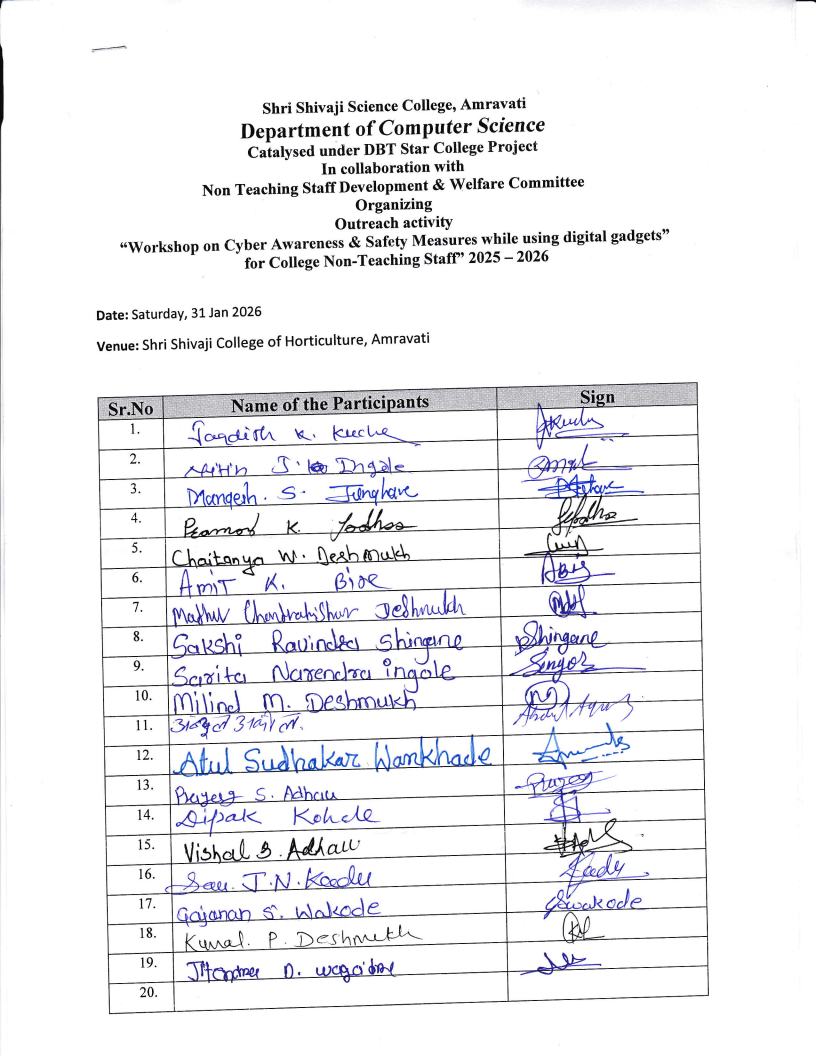 Shri Shivaji Science College, Amravati
Department of Computer Science
Catalysed under DBT Star College Project
In collaboration with
Non Teaching Staff Development & Welfare Committee
Organizing
Outreach activity
“Workshop on Cyber Awareness & Safety Measures while using digital gadgets”
for College Non-Teaching Staff” 2025 – 2026
Date: Saturday, 31 Jan 2026
Venue: Shri Shivaji College of Horticulture, Amravati
Sr.No Name of the Participants Sign
1. Jagdish K. Kuche
2. Nitin J. Ingole
3. Mangesh. S. Junghare
4. Pramod K. Jodhaa
5. Chaitanya W. Deshmukh
6. Amit K. Bire
7. Madhur Chandrakishor Deshmukh
8. Sakshi Ravindra Shingane Shingane
9. Sarita Narendra ingole
10. Milind M. Deshmukh
11.
12. Atul Sudhakar Wankhade
13. S. Adhau
14. Dipak Kohale
15. Vishal S. Adhau
16. Sau. J.N. Kadu
17. Gajanan S. Wakode Gswakode
18. Kunal. P. Deshmukh
19. D.
20.